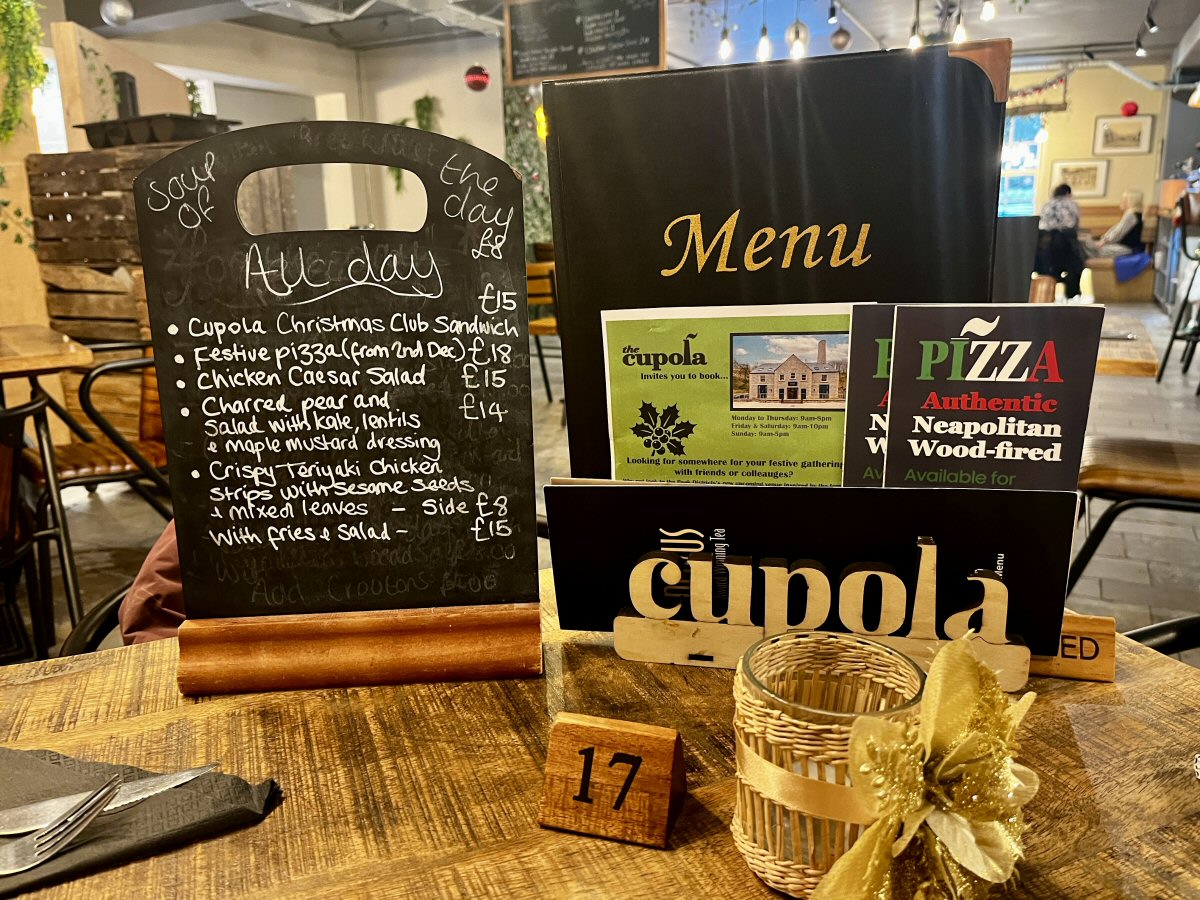 Soup
of
the
day
£8
All day
£15
• Cupola Christmas Club Sandwich
• Festive pizza (from 2nd Dec) £18
• Chicken Caesar Salad £15
• Charred pear and £14
Salad with kale, lentils
& maple mustard dressing
• Crispy Teriyaki Chicken
Strips with Sesame Seeds
& mixed leaves - Side £8
With fries & Salad - £15
Add Croutons
Menu
the
cupola
Invites you to book...
Monday to Thursday: 9am-5pm
Friday & Saturday: 9am-10pm
Sunday: 9am-5pm
Looking for somewhere for your festive gathering
with friends or colleauges?
P
A
N
W
Av
PIZZA
Authentic
Neapolitan
Wood-fired
Available for
US
Tea
Menu
cupola
ED
17